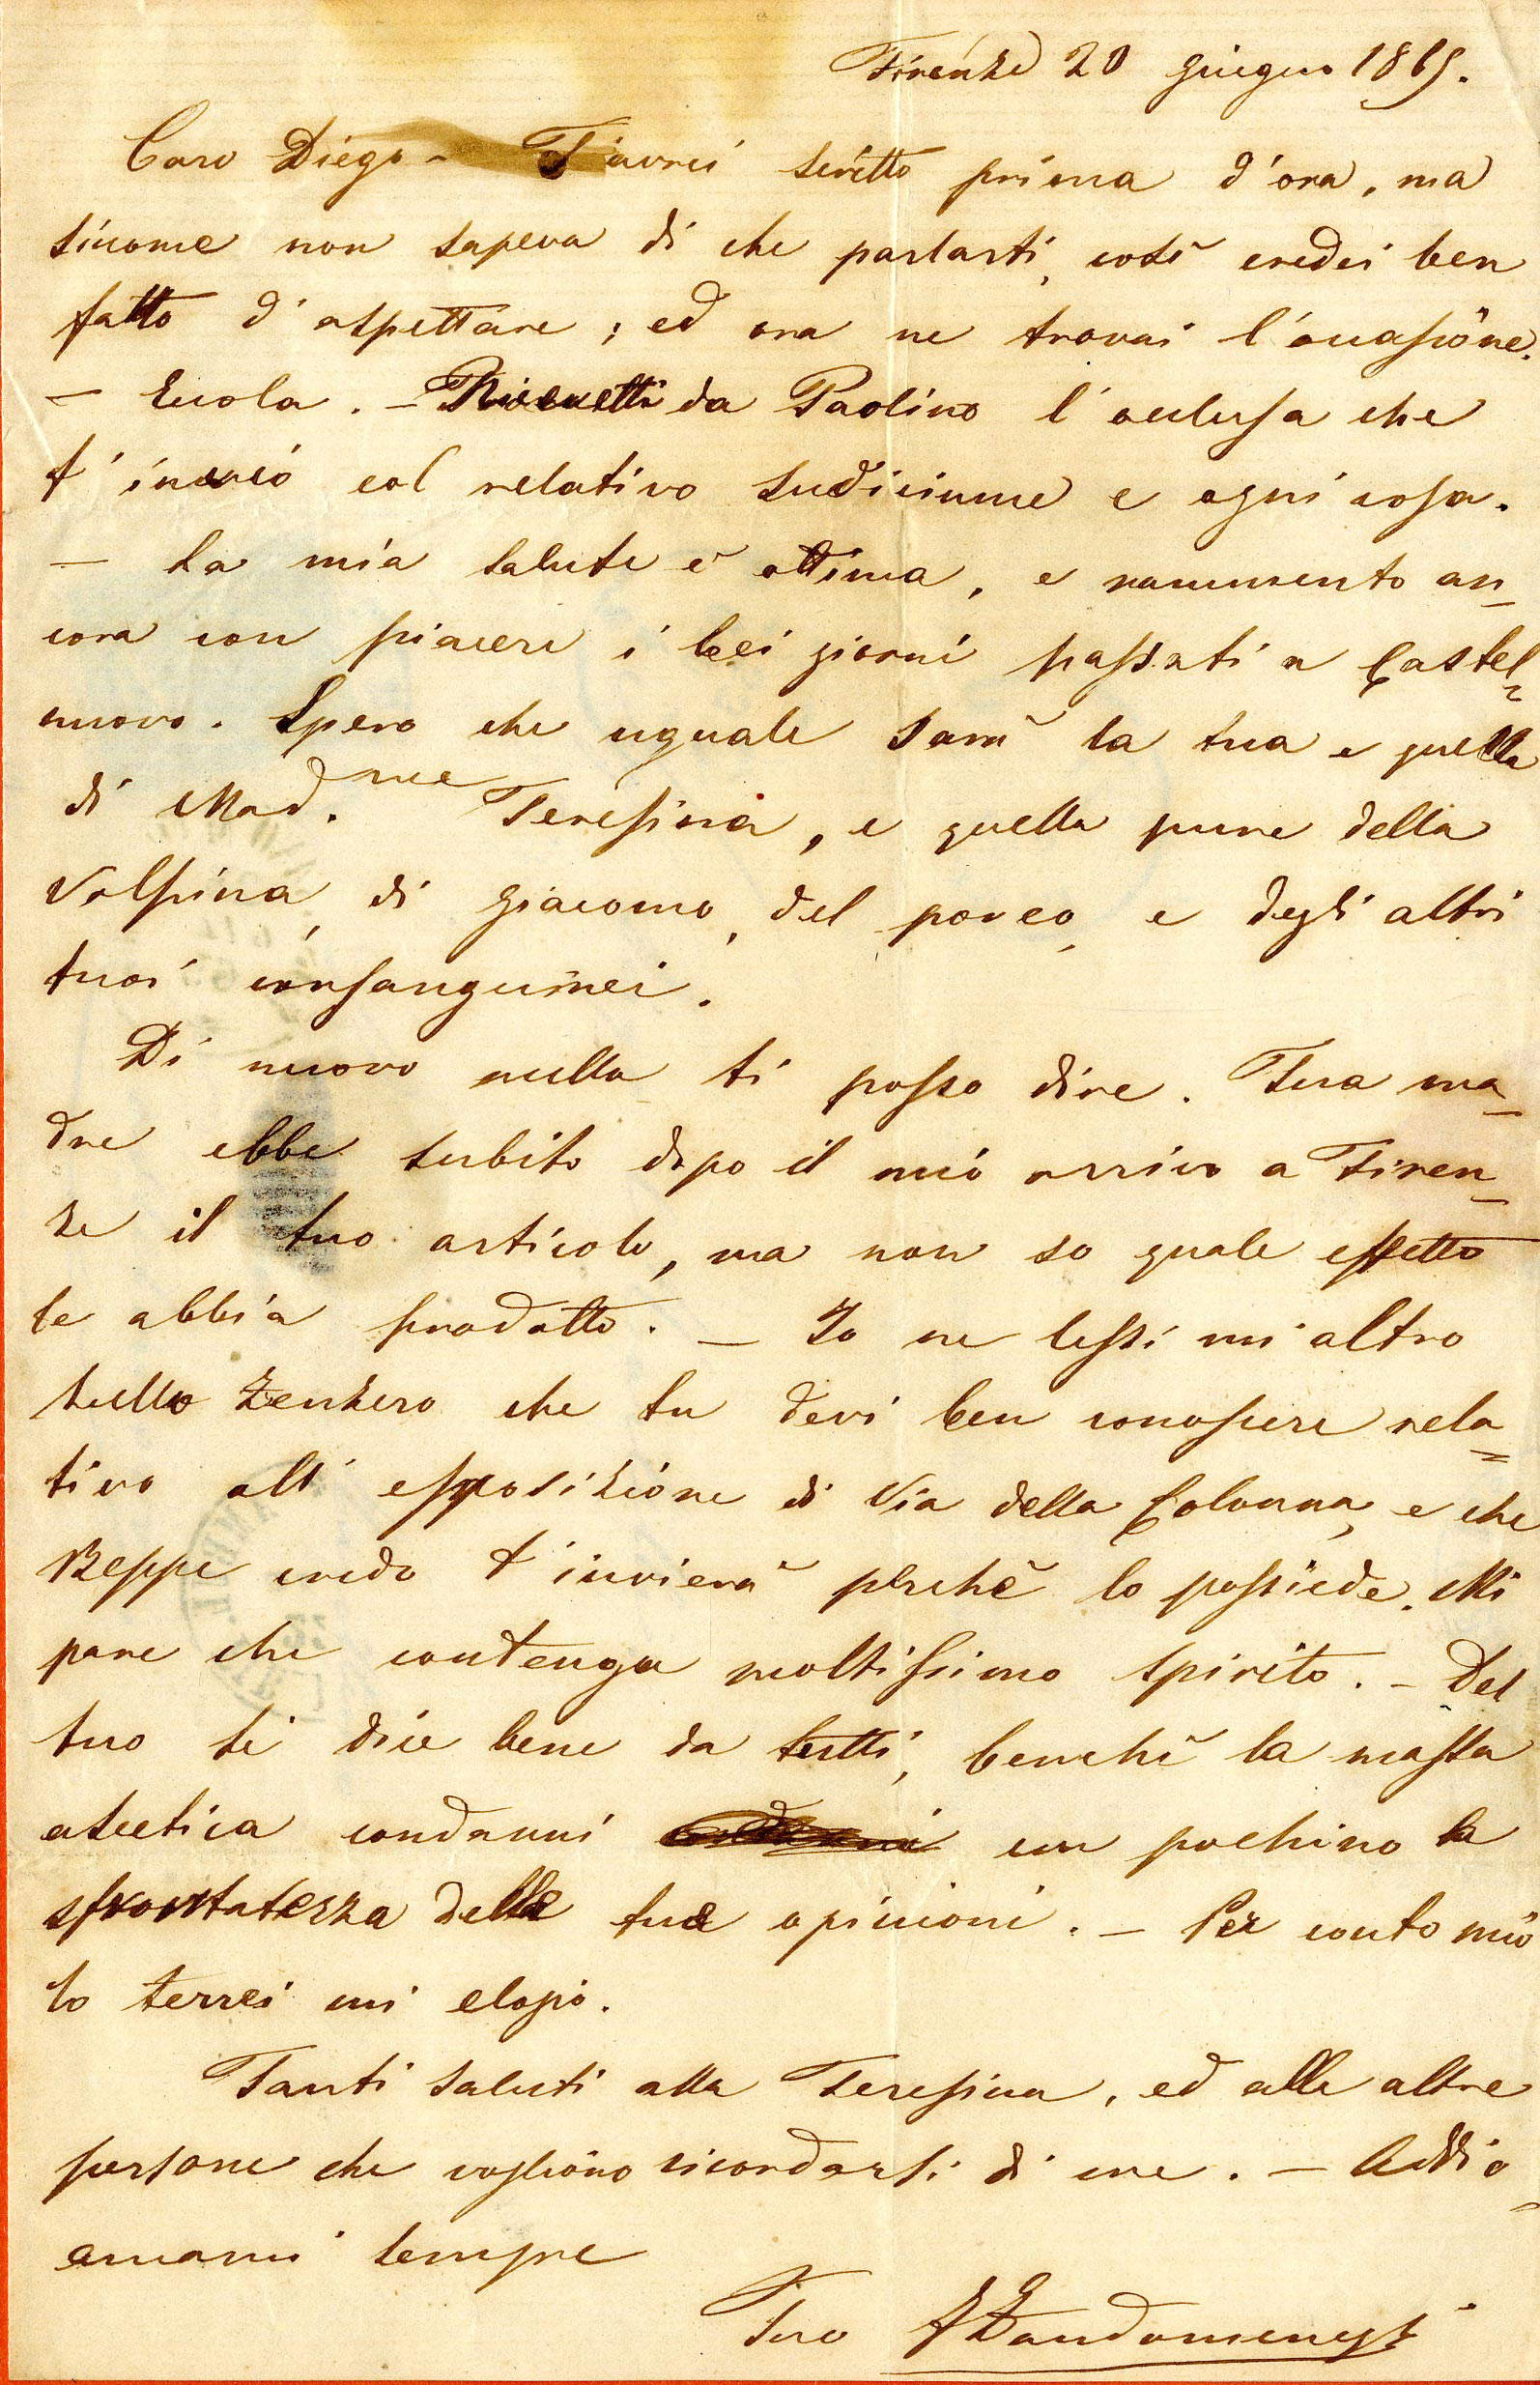 Firenze 20 giugno 1865.
Caro Diego – T'avrei scritto prima d'ora, ma
siccome non sapeva di che parlarti, così credei ben
fatto d'aspettare; ed ora ne trovai l'occasione.
– Eccola. – Ricevetti da Paolino l'acclusa che
t'invio col relativo sudiciume e ogni cosa.
– La mia salute è ottima, e rammento an_
cora con piacere i bei giorni passati a Castel_
nuovo. Spero che uguale sarà la tua e quella
di Mad.me Teresina, e quella pure della
Volpina, di Giacomo, del porco, e degli altri
tuoi consanguinei.
Di nuovo nulla ti posso dire. Tua ma_
dre ebbe subito dopo il mio arrivo a Firen_
ze il tuo articolo, ma non so quale effetto
le abbia prodotto. – Io ne lessi un altro
sullo Zenzero che tu devi ben conoscere rela_
tivo all'esposizione di Via della Colonna, e che
Beppe credo t'invierà perchè lo possiede. Mi
pare che contenga moltissimo spirito. – Del
tuo si dice bene da tutti, benchè la massa
ascetica condanni un pochino la
sfrontatezza delle tue opinioni. – Per conto mio
lo terrei un elogio.
Tanti saluti alla Teresina, ed alle altre
persone che vogliono ricordarsi di me. – Addio_
amami sempre
Tuo FZandomeneghi